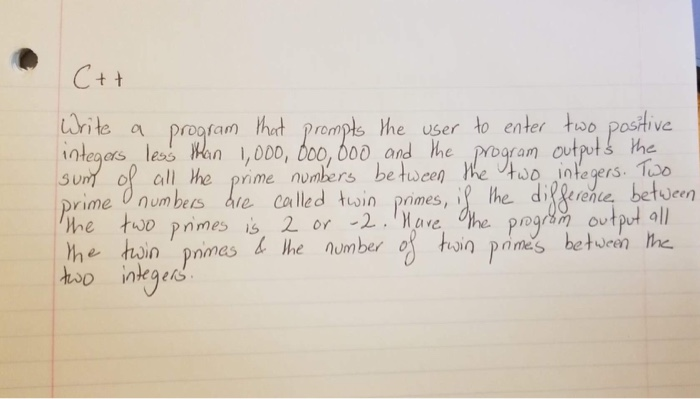 C++
Write a program that prompts the user to enter two positive
integers less than 1,000,000,000 and the program outputs the
sum of all the prime numbers between the two integers. Two
prime numbers are called twin primes, if the difference between
the two primes is 2 or -2. Have the program output all
the twin primes & the number of twin primes between the
two integers.